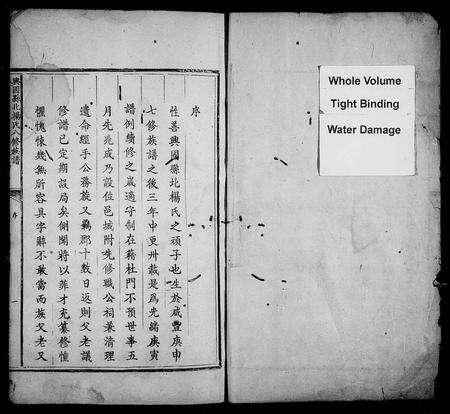 序
性善興國縣北楊氏之頑子也生於咸豐庚申
七修族譜之後三年中更卅載是爲先緒庚寅
譜例續修之歲適守制在籍杜門不預世事五
月先兆成乃設位邑城附先修職公祠兼清理
遺命經手公務蒇又羈郡十數日返則父老議
修譜已定期設局矣側聞將以菲才充纂修惶
懼愧悚幾無所容具字辭不敢當而族父老又
興國縣北楊氏八修族譜
序
Whole Volume
Tight Binding
Water Damage